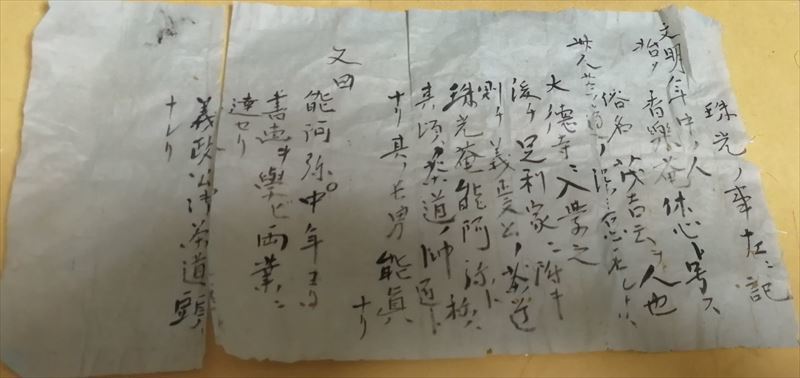 珠光ノ事左ニ記
文明年中ノ人
始メ香樂菴休心ト号ス
俗名茂吉云ウ人也
大德寺ニ入學之
後チ足利家ニ附キ
則チ義政公ノ茶道
珠光菴能阿弥ト称ス
其頃茶道ノ師匠ト
ナリ其ノ長男能眞ナリ
又曰
能阿弥中年ヨリ
書画ヲ學ビ両業ニ
達セリ
義政公御茶道頭
ナレリ